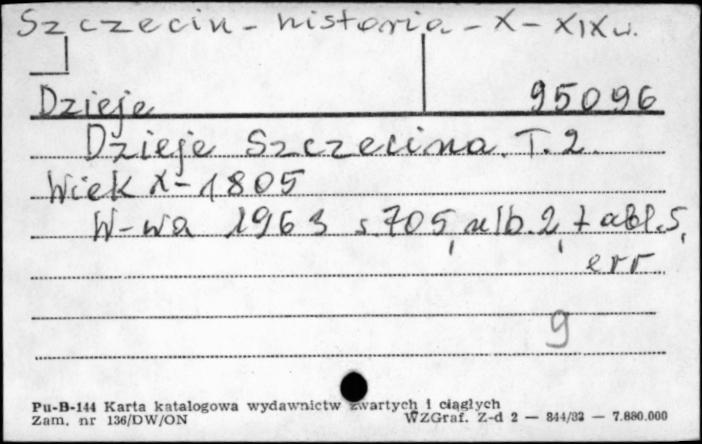 Szczecin - historia - X - XIX w.
Dzieje 95096
Dzieje Szczecina. T. 2.
Wiek X - 1805
W-wa 1963 s. 705, nlb. 2, tabl. 5,
err.
9
Pu-B-144 Karta katalogowa wydawnictw zwartych i ciągłych
Zam. nr 136/DW/ON WZGraf. Z-d 2 — 844/82 — 7.880.000